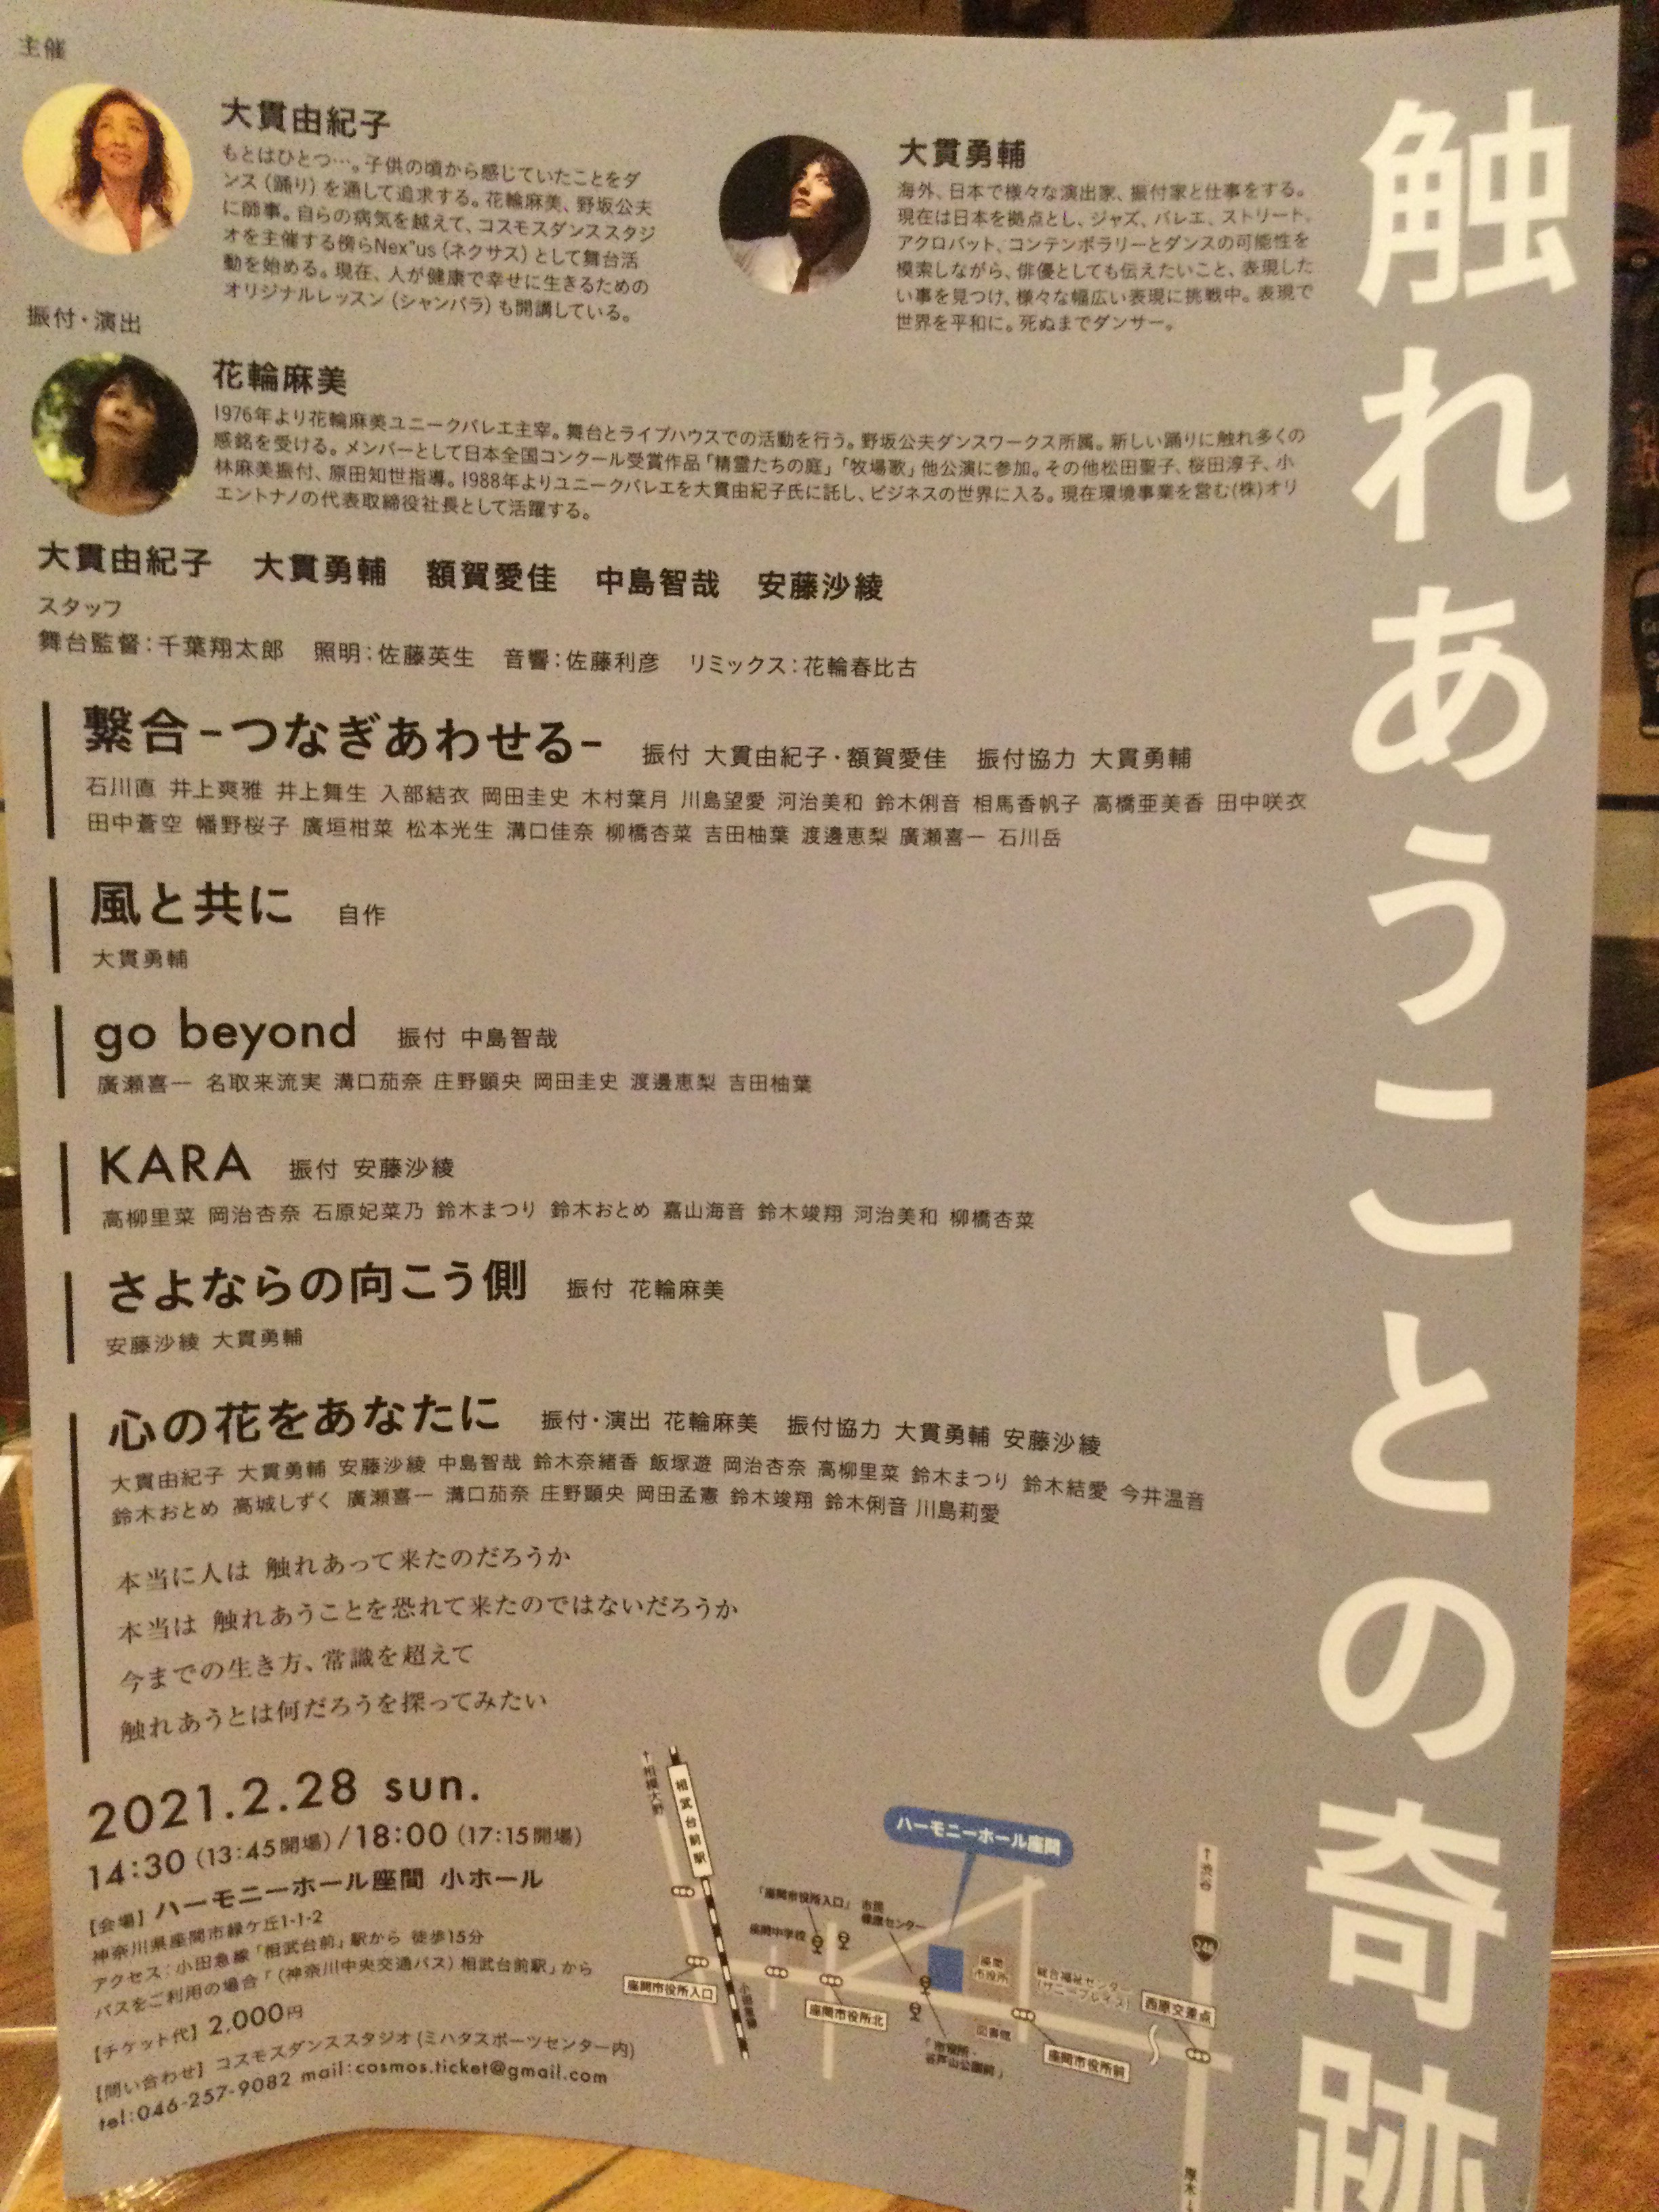 触れあうことの奇跡
主催
大貫由紀子
もとはひとつ…。子供の頃から感じていたことをダ
ンス（踊り）を通して追求する。花輪麻美、野坂公夫
に師事。自らの病気を越えて、コスモスダンススタジ
オを主催する傍らNex"us（ネクサス）として舞台活
動を始める。現在、人が健康で幸せに生きるための
オリジナルレッスン（シャンバラ）も開講している。
大貫勇輔
海外、日本で様々な演出家、振付家と仕事をする。
現在は日本を拠点とし、ジャズ、バレエ、ストリート、
アクロバット、コンテンポラリーとダンスの可能性を
模索しながら、俳優としても伝えたいこと、表現した
い事を見つけ、様々な幅広い表現に挑戦中。表現で
世界を平和に。死ぬまでダンサー。
振付・演出
花輪麻美
1976年より花輪麻美ユニークバレエ主宰。舞台とライブハウスでの活動を行う。野坂公夫ダンスワークス所属。新しい踊りに触れ多くの
感銘を受ける。メンバーとして日本全国コンクール受賞作品「精霊たちの庭」「牧場歌」他公演に参加。その他松田聖子、桜田淳子、小
林麻美振付、原田知世指導。1988年よりユニークバレエを大貫由紀子氏に託し、ビジネスの世界に入る。現在環境事業を営む(株)オリ
エントナノの代表取締役社長として活躍する。
大貫由紀子 大貫勇輔 額賀愛佳 中島智哉 安藤沙綾
スタッフ
舞台監督：千葉翔太郎 照明：佐藤英生 音響：佐藤利彦 リミックス：花輪春比古
繋合-つなぎあわせる- 振付 大貫由紀子・額賀愛佳 振付協力 大貫勇輔
石川直 井上爽雅 井上舞生 入部結衣 岡田圭史 木村葉月 川島望愛 河治美和 鈴木俐音 相馬香帆子 高橋亜美香 田中咲衣
田中蒼空 幡野桜子 廣垣柑菜 松本光生 溝口佳奈 柳橋杏菜 吉田柚葉 渡邊恵梨 廣瀬喜一 石川岳
風と共に 自作
大貫勇輔
go beyond 振付 中島智哉
廣瀬喜一 名取来流実 溝口茄奈 庄野顕央 岡田圭史 渡邊恵梨 吉田柚葉
KARA 振付 安藤沙綾
高柳里菜 岡治杏奈 石原妃菜乃 鈴木まつり 鈴木おとめ 嘉山海音 鈴木竣翔 河治美和 柳橋杏菜
さよならの向こう側 振付 花輪麻美
安藤沙綾 大貫勇輔
心の花をあなたに 振付・演出 花輪麻美 振付協力 大貫勇輔 安藤沙綾
大貫由紀子 大貫勇輔 安藤沙綾 中島智哉 鈴木奈緒香 飯塚遊 岡治杏奈 高柳里菜 鈴木まつり 鈴木結愛 今井温音
鈴木おとめ 高城しずく 廣瀬喜一 溝口茄奈 庄野顕央 岡田孟憲 鈴木竣翔 鈴木俐音 川島莉愛
本当に人は 触れあって来たのだろうか
本当は 触れあうことを恐れて来たのではないだろうか
今までの生き方、常識を超えて
触れあうとは何だろうを探ってみたい
2021.2.28 sun.
14:30（13:45開場）/18:00（17:15開場）
【会場】ハーモニーホール座間 小ホール
神奈川県座間市緑ケ丘1-1-2
アクセス：小田急線「相武台前」駅から 徒歩15分
バスをご利用の場合「（神奈川中央交通バス）相武台前駅」から
【チケット代】2,000円
【問い合わせ】コスモスダンススタジオ(ミハタスポーツセンター内)
tel:046-257-9082 mail:cosmos.ticket@gmail.com
↑相模大野
相武台前駅
ハーモニーホール座間
↑渋谷
「座間市役所入口」
市民
健康センター
座間中学校
246
座間
市役所
総合福祉センター
(サニープレイス)
座間市役所入口
小田急線
座間市役所北
西原交差点
図書館
「市役所・
谷戸山公園前」
座間市役所前
厚木↓